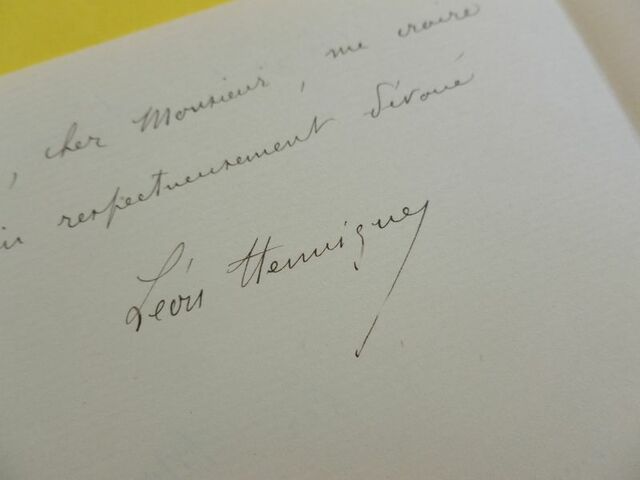 , cher Monsieur, me croire
respectueusement dévoué
Léon Hennique